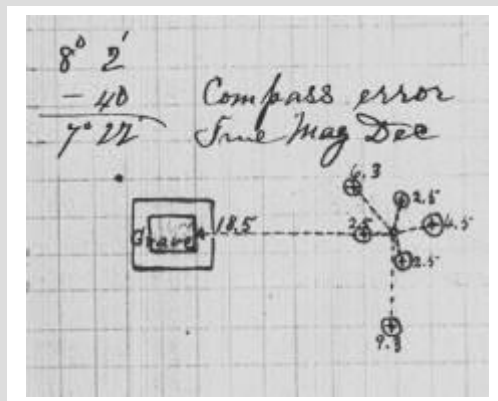 8° 2'
- 40 Compass error
7° 22 True Mag Dec
6.3
2.5
Grave 18.5 2.5 4.5
2.5
9.3